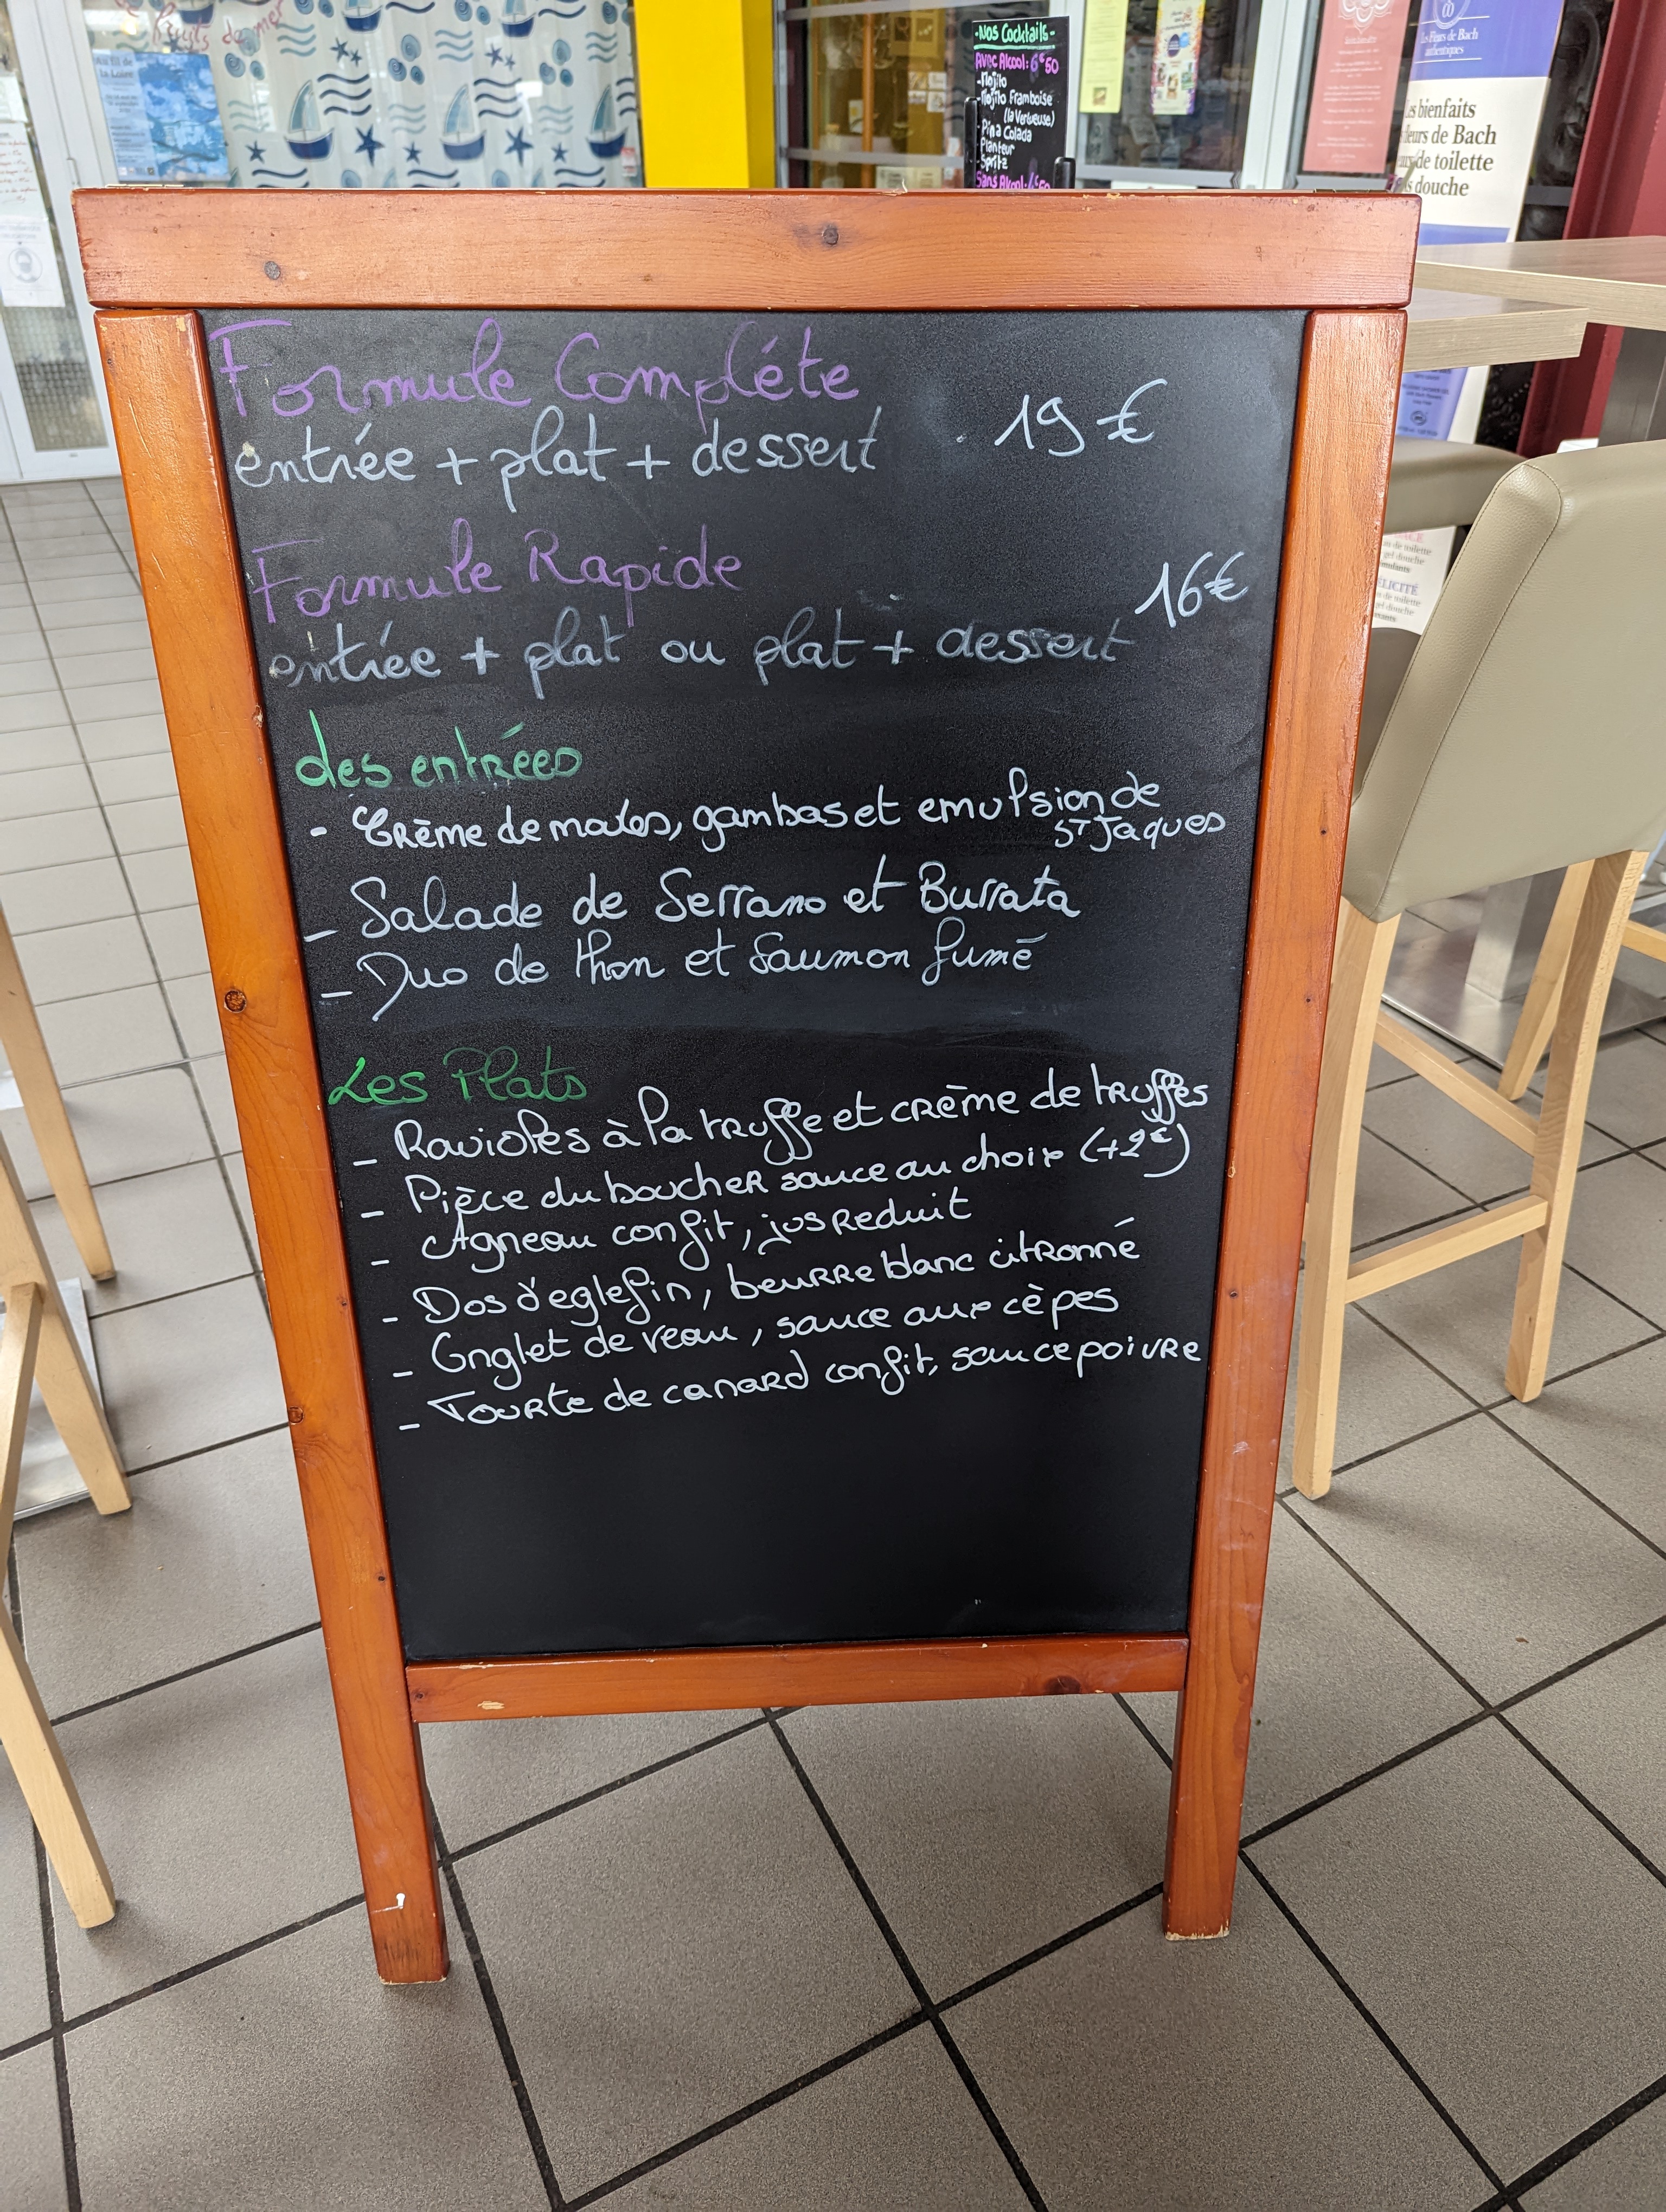 Fruits de mer
Au fil de
la Loire
-Nos Cocktails-
Avec Alcool: 6€50
-Mojito
-Mojito Framboise
(la Verveuse)
-Pina Colada
-Planteur
-Spritz
Sans Alcool:
Les Fleurs de Bach
authentiques
es bienfaits
leurs de Bach
de toilette
s douche
Formule Compléte
entrée + plat + dessert 19 €
Formule Rapide
16€
entrée + plat ou plat + dessert
des entrées
- Crème de moules, gambas et emulsion de
ST Jaques
- Salade de Serrano et Burrata
- Duo de thon et Saumon fumé
Les Plats
- Ravioles à la truffe et crème de truffes
- Pièce du boucher sauce au choix (+2€)
- Agneau confit, jus reduit
- Dos d'eglefin, beurre blanc citronné
- Onglet de veau, sauce aux cèpes
- Tourte de canard confit, sauce poivre